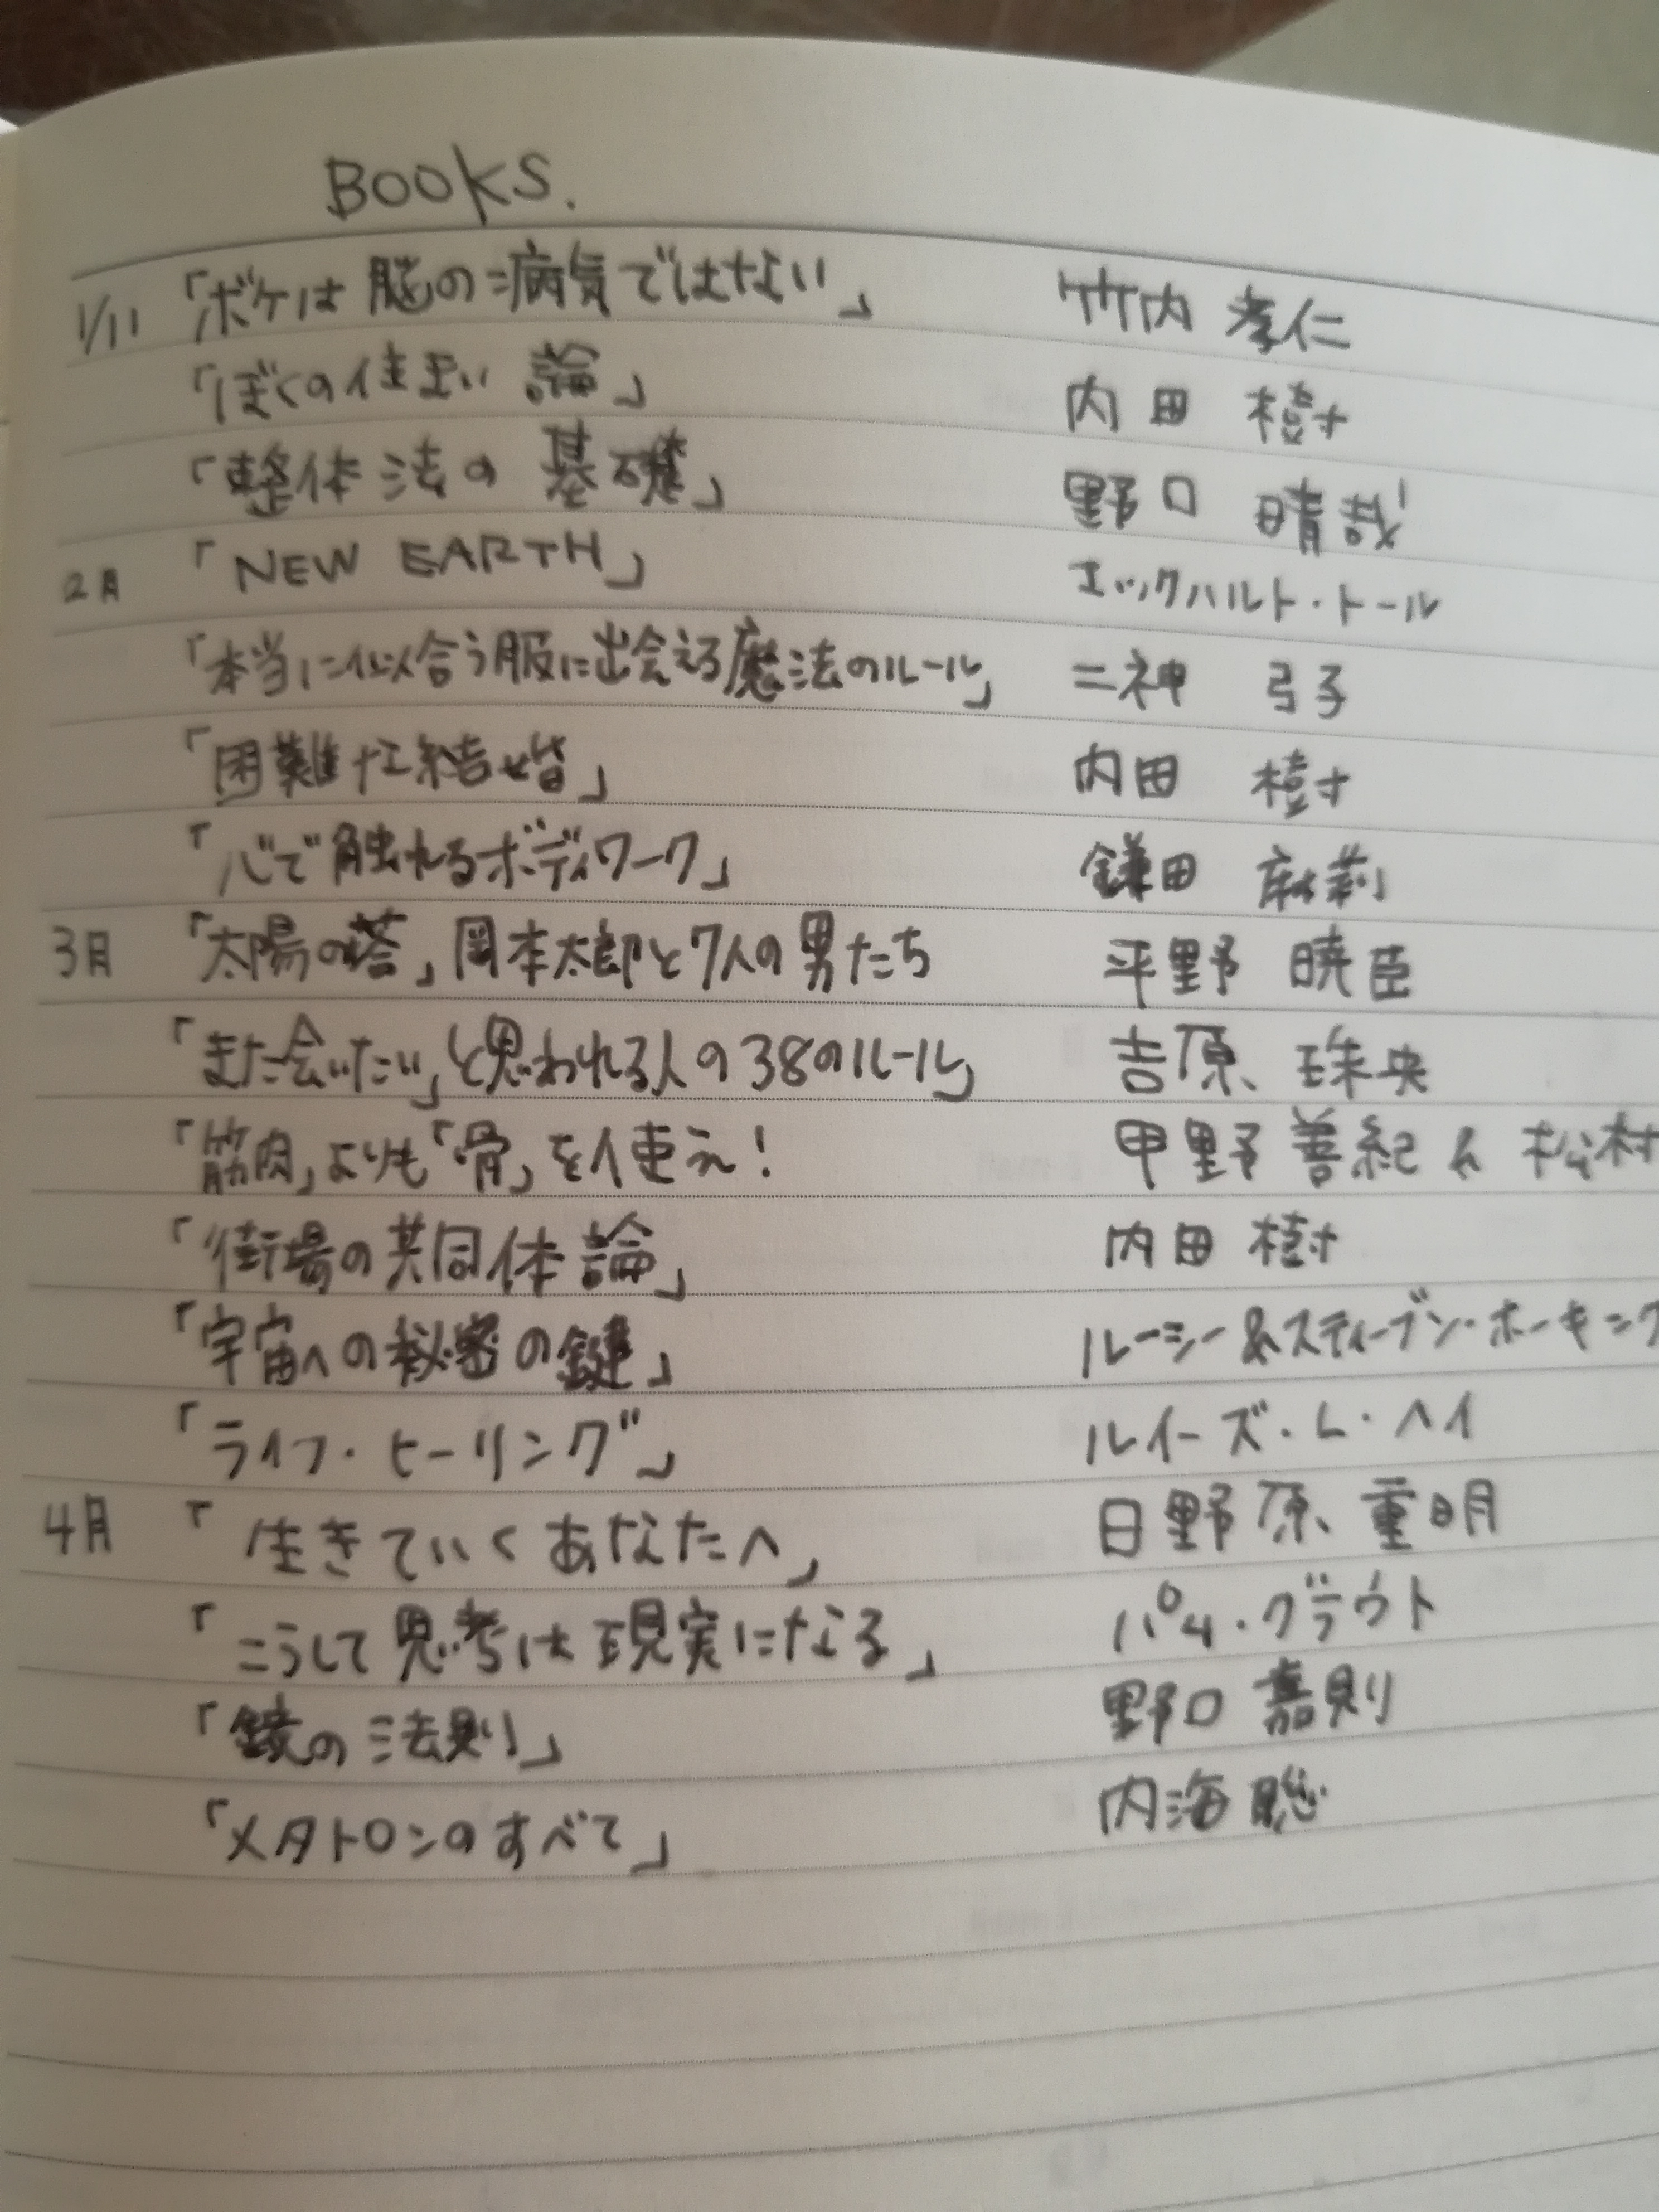 BOOKS.
1/11 「ボケは脳の病気ではない」 竹内 孝仁
「ぼくの住まい論」 内田 樹
「整体法の基礎」 野口 晴哉
2月 「NEW EARTH」 エックハルト・トール
「本当に似合う服に出会える魔法のルール」 二神 弓子
「困難な結婚」 内田 樹
「心で触れるボディワーク」 鎌田 麻莉
3月 「太陽の塔」岡本太郎と7人の男たち 平野 暁臣
「また会いたい」と思われる人の38のルール」 吉原 珠央
「筋肉」よりも「骨」を使え! 甲野 善紀 & 松村
「街場の共同体論」 内田 樹
「宇宙への秘密の鍵」 ルーシー&スティーブン・ホーキング
「ライフ・ヒーリング」 ルイーズ・L・ヘイ
4月 「生きていくあなたへ」 日野原 重明
「こうして思考は現実になる」 パム・グラウト
「鏡の法則」 野口 嘉則
「メタトロンのすべて」 内海 聡